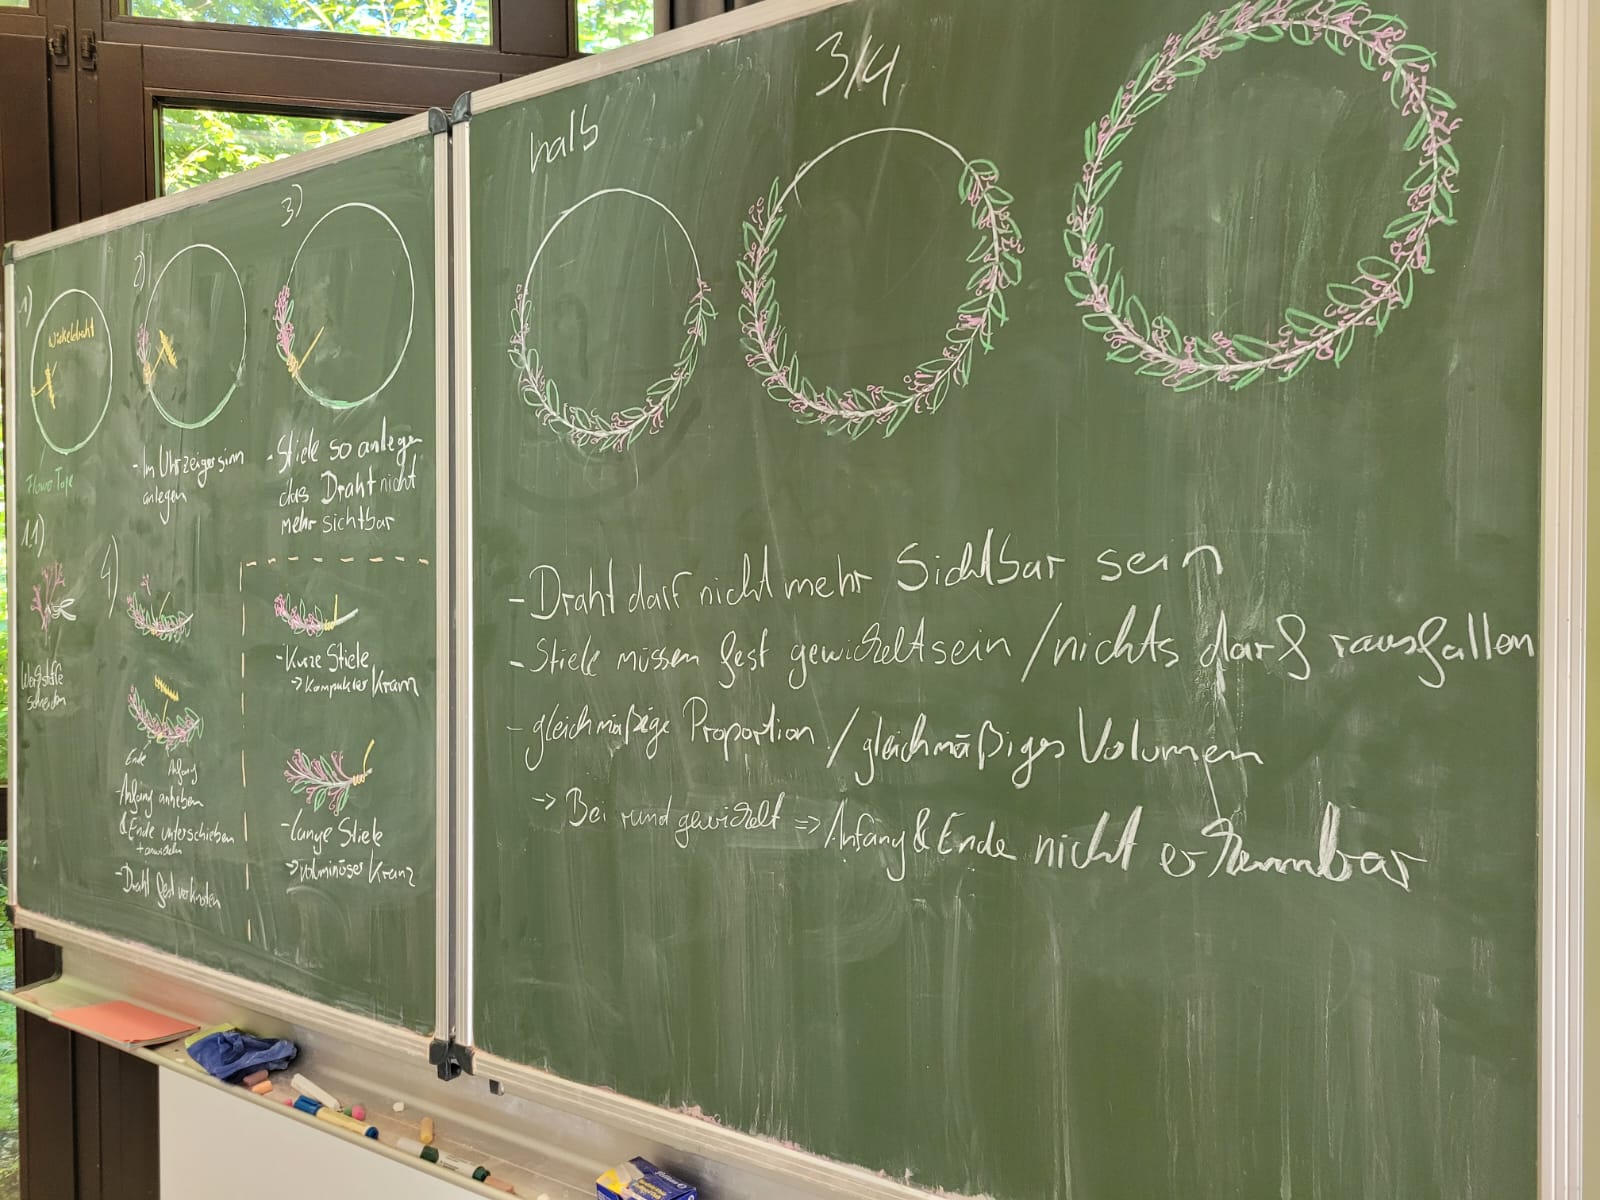 1)
Wickeldraht
Flower Tape
1.1)
Werkstoffe
schneiden
2)
- Im Uhrzeigersinn
anlegen
3)
- Stiele so anlegen
das Draht nicht
mehr sichtbar
4)
Ende Anfang
- Anfang anheben
& Ende unterschieben
+ anwickeln
- Draht fest verknoten
- Kurze Stiele
-> Kompakter Kranz
- Lange Stiele
-> voluminöser Kranz
halb
3/4
- Draht darf nicht mehr Sichtbar sein
- Stiele müssen fest gewickelt sein / nichts darf rausfallen
- gleichmäßige Proportion / gleichmäßiges Volumen
-> Bei rund gewickelt => Anfang & Ende nicht erkennbar